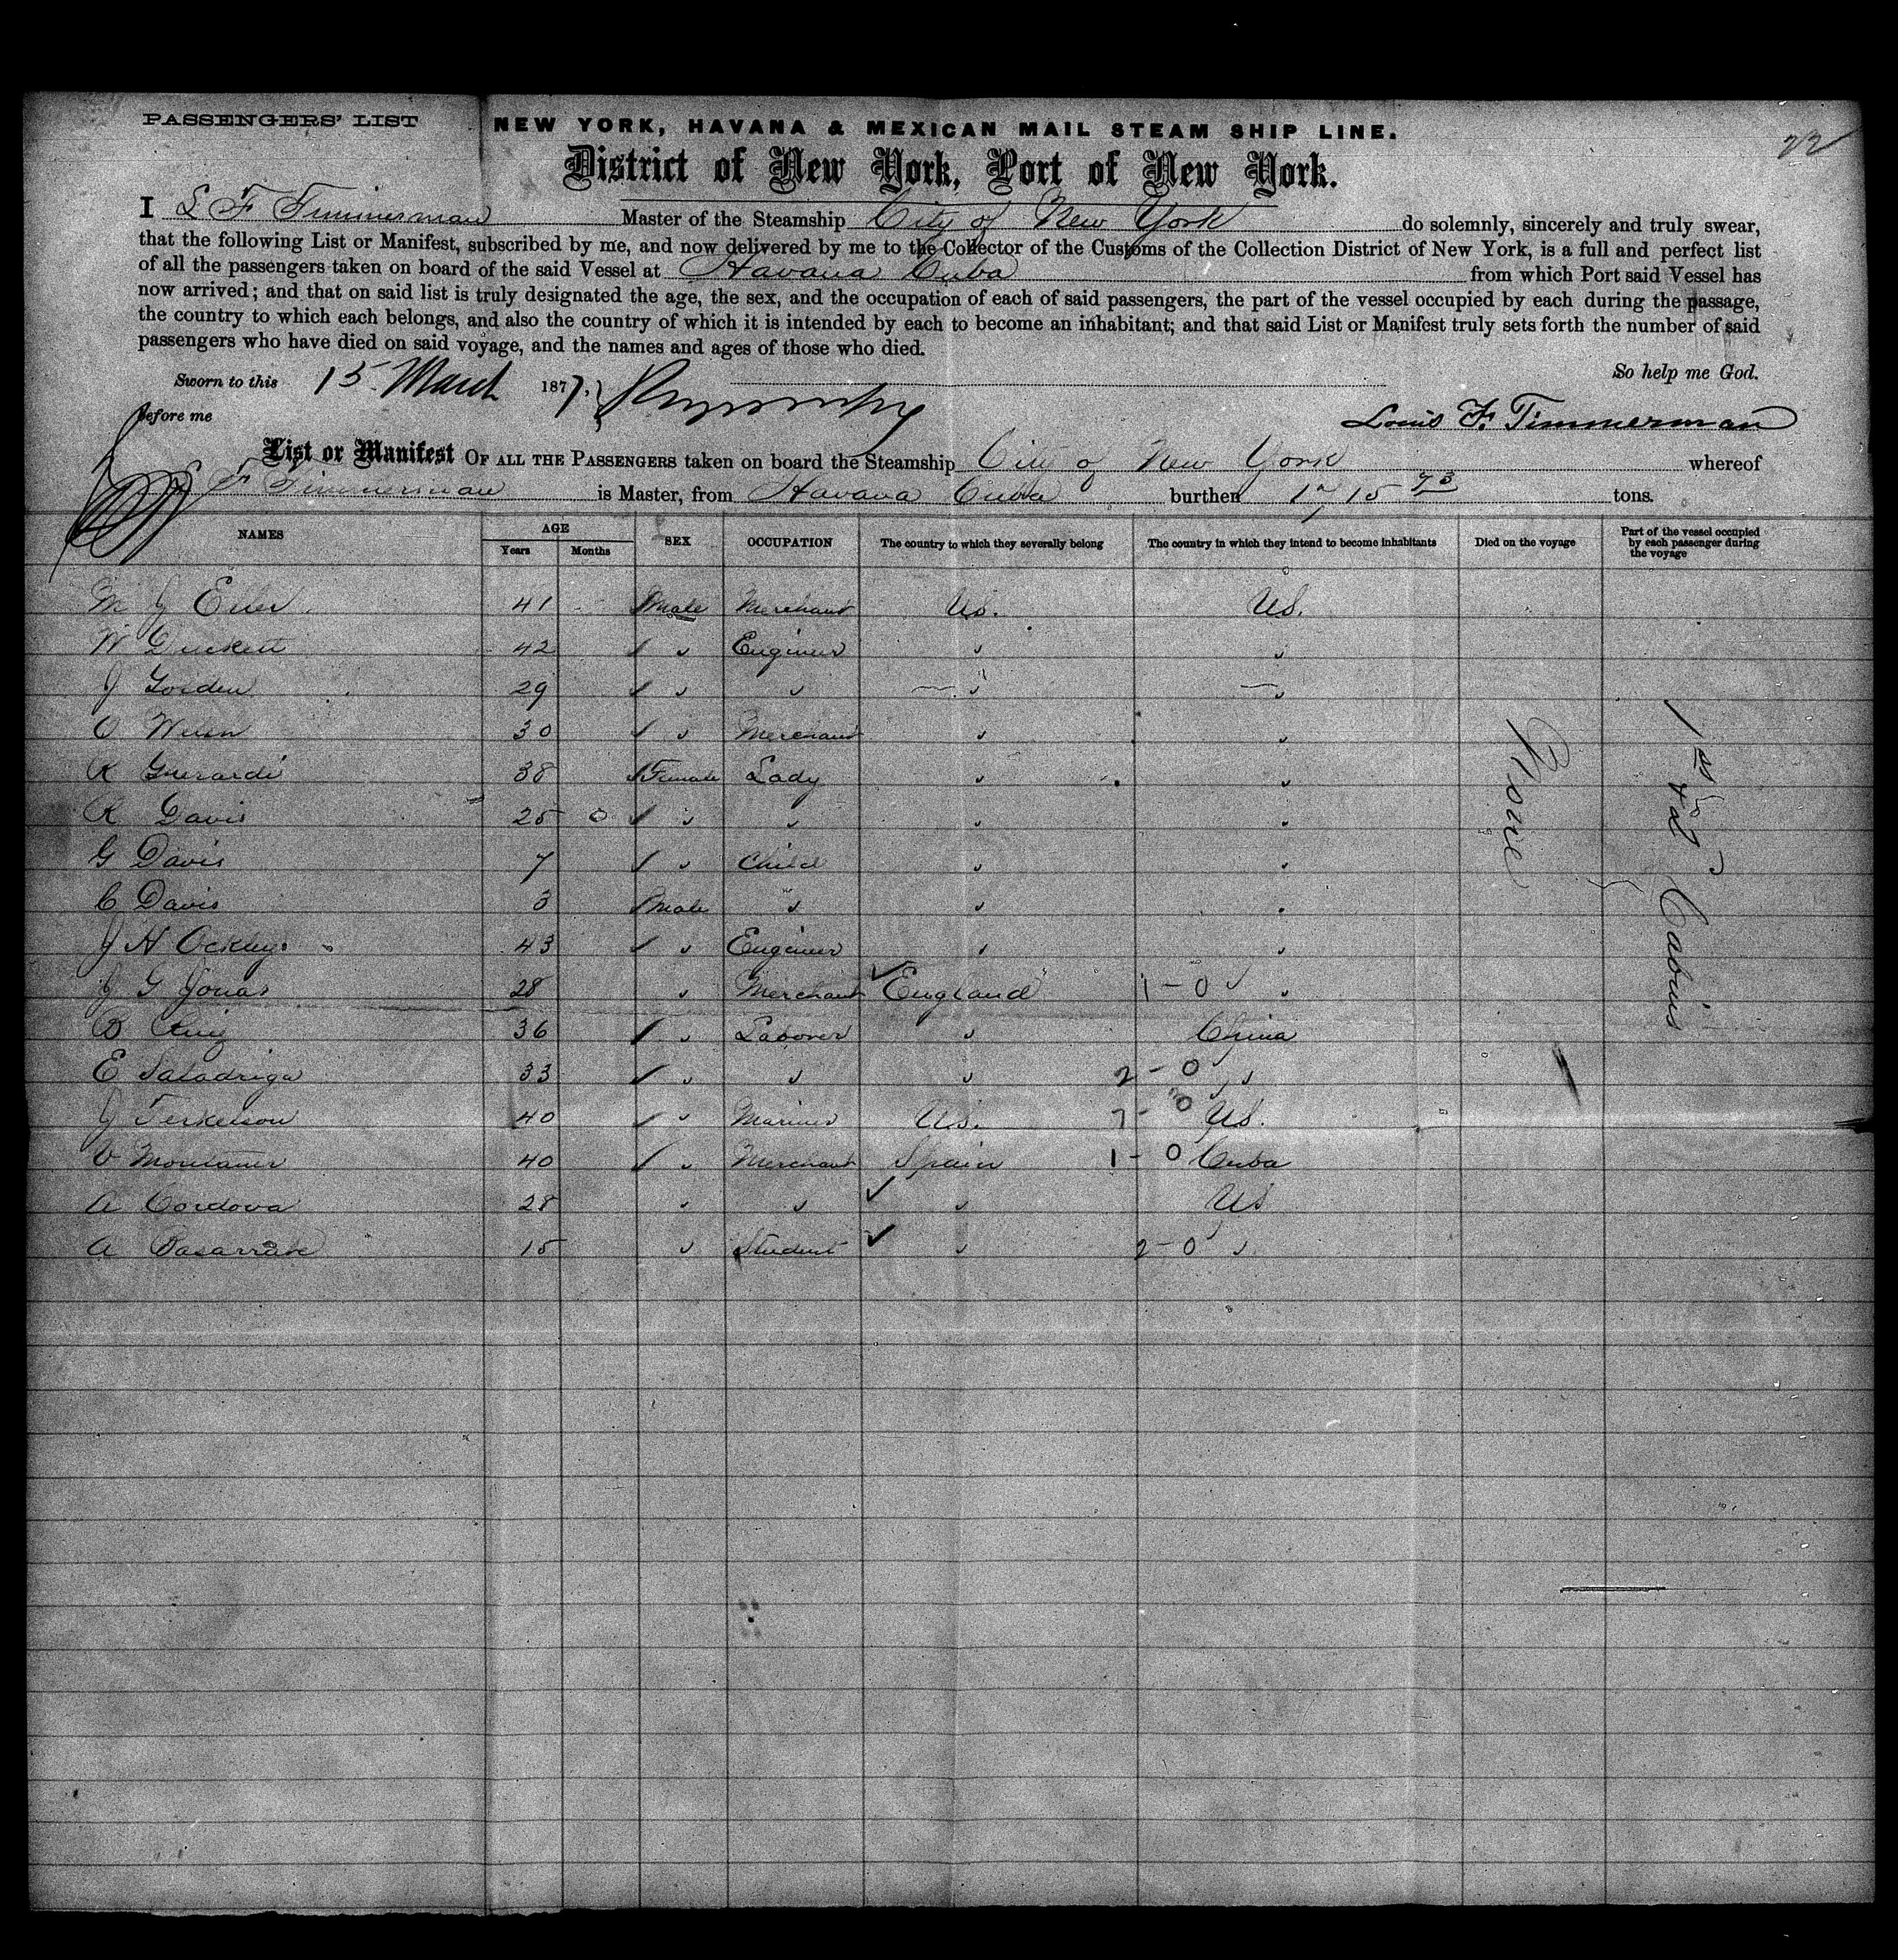 PASSENGERS' LIST
NEW YORK, HAVANA & MEXICAN MAIL STEAM SHIP LINE.
22
District of New York, Port of New York.
I L F Timmerman Master of the Steamship City of New York do solemnly, sincerely and truly swear,
that the following List or Manifest, subscribed by me, and now delivered by me to the Collector of the Customs of the Collection District of New York, is a full and perfect list
of all the passengers taken on board of the said Vessel at Havana Cuba from which Port said Vessel has
now arrived; and that on said list is truly designated the age, the sex, and the occupation of each of said passengers, the part of the vessel occupied by each during the passage,
the country to which each belongs, and also the country of which it is intended by each to become an inhabitant; and that said List or Manifest truly sets forth the number of said
passengers who have died on said voyage, and the names and ages of those who died.
Sworn to this 15 March 1877. So help me God.
before me Louis F. Timmerman
List or Manifest OF ALL THE PASSENGERS taken on board the Steamship City of New York whereof
L F Timmerman is Master, from Havana Cuba burthen 1715 73 tons.
NAMES AGE Years Months SEX OCCUPATION The country to which they severally belong The country in which they intend to become inhabitants Died on the voyage Part of the vessel occupied by each passenger during the voyage
M J 41 Male Merchant US. US.
W 42 " Engineer " "
J 29 " " " "
O 30 " Merchant " "
K 38 Female Lady " "
R Davis 25 0 " " " "
G Davis 7 " Child " "
C Davis 3 Male " " "
J H 43 " Engineer " "
J G Jonas 28 " Merchant England 1-0 "
B Ruiz 36 " Laborer " China
E Saladriga 33 " " " 2-0 "
J Terkelson 40 " Mariner US. US.
V 40 " Merchant Spain 1-0 Cuba
A Cordova 28 " " " US
A 15 " Student " 2-0 "
None
1st & 2d Cabins